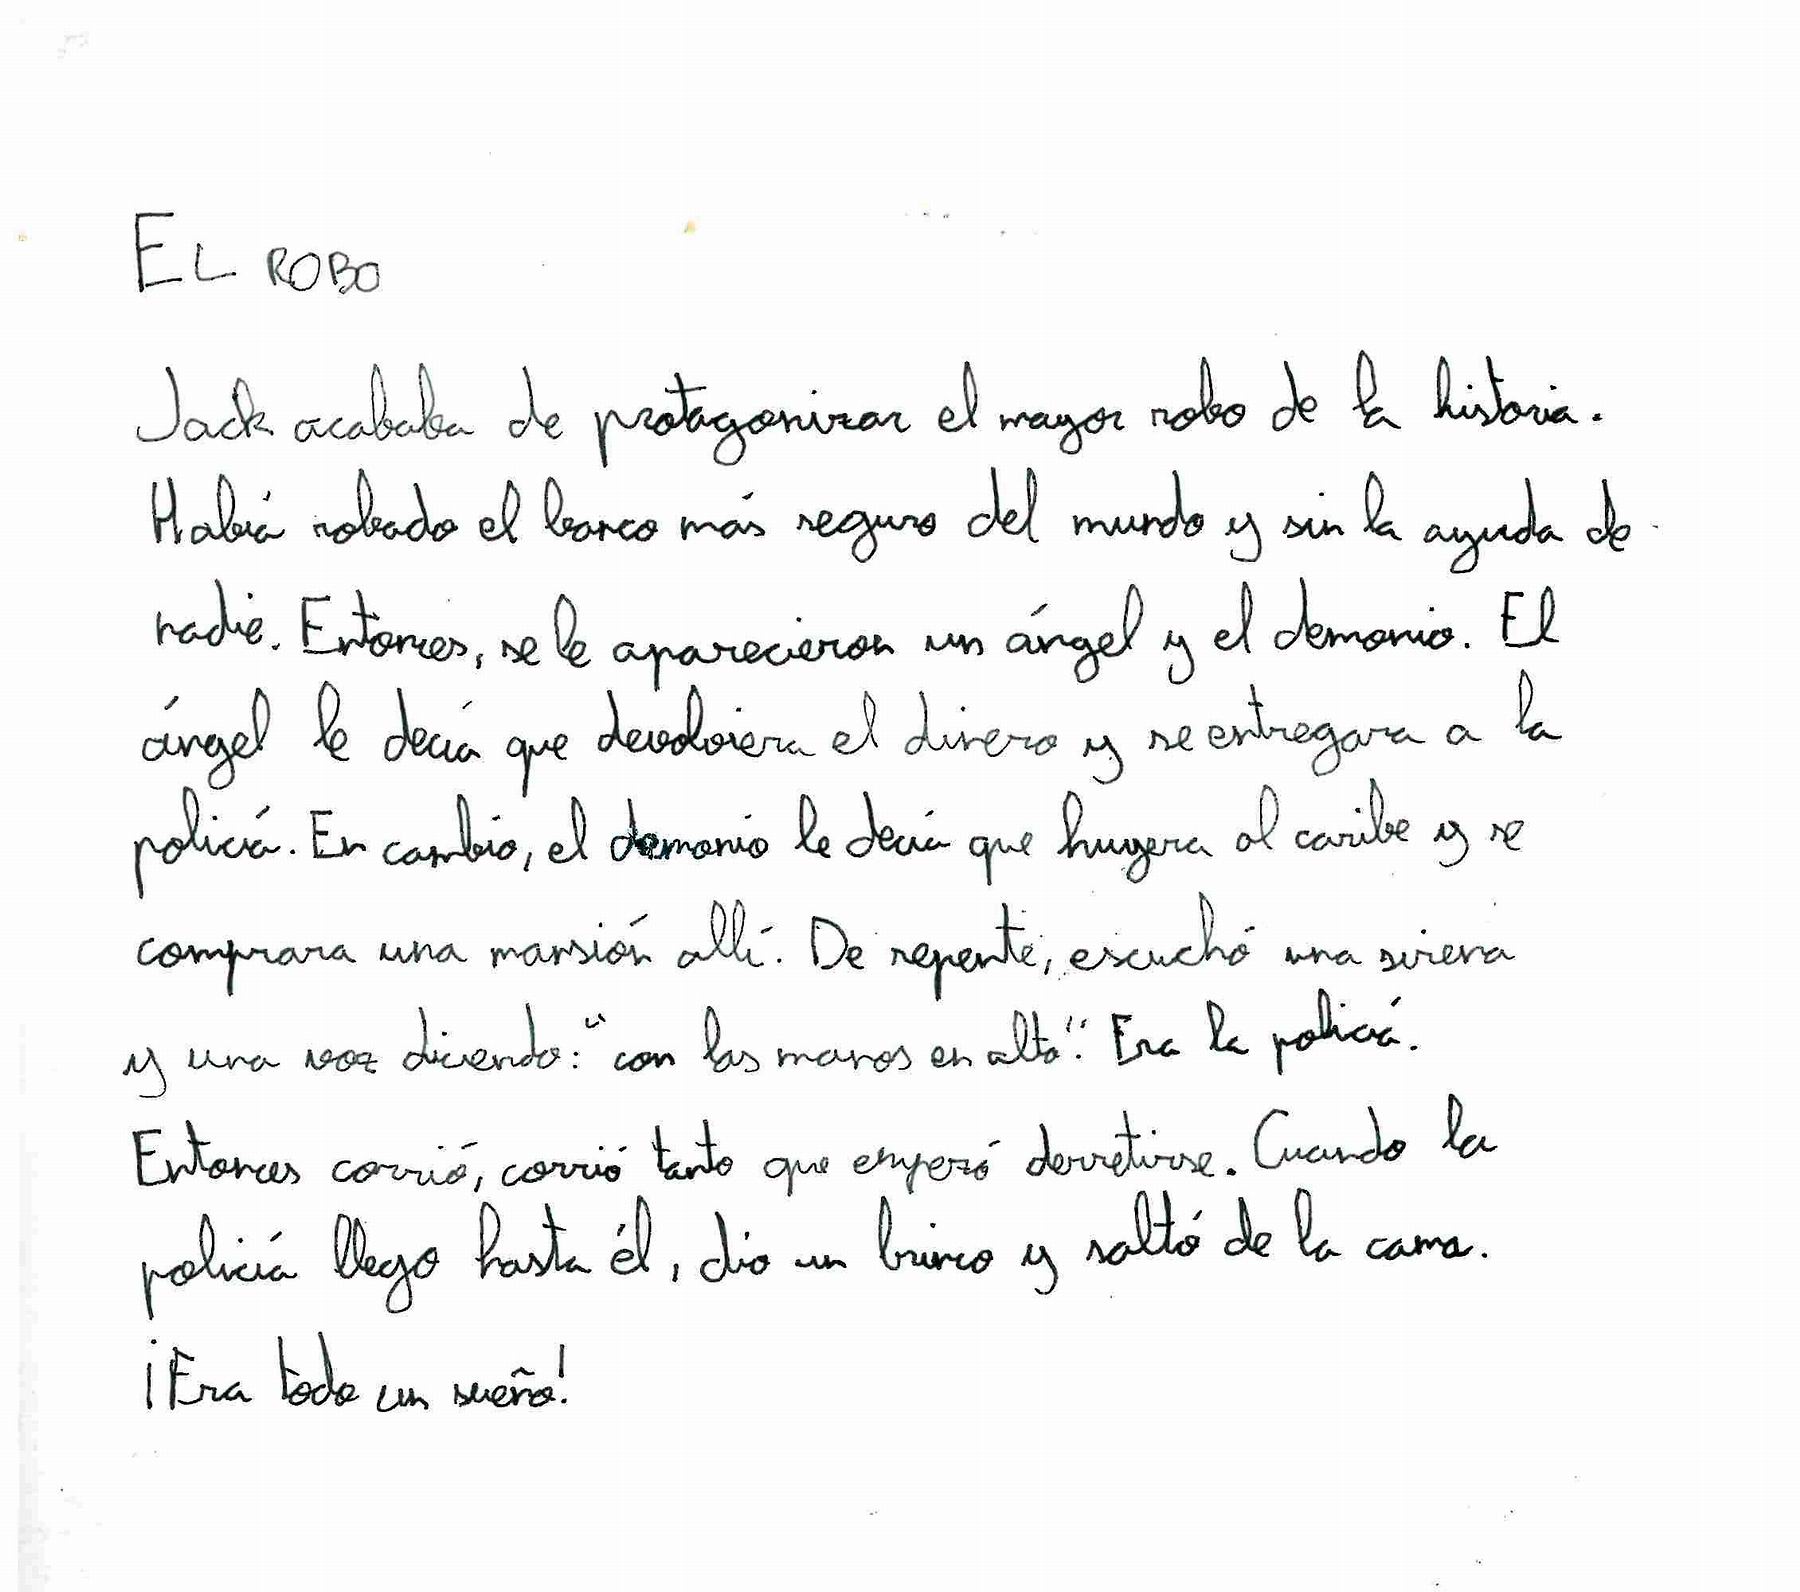 EL ROBO
Jack acababa de protagonizar el mayor robo de la historia.
Había robado el banco más seguro del mundo y sin la ayuda de
nadie. Entonces, se le aparecieron un ángel y el demonio. El
ángel le decía que devolviera el dinero y se entregara a la
policía. En cambio, el demonio le decía que huyera al caribe y se
comprara una mansión allí. De repente, escuchó una sirena
y una voz diciendo: "con las manos en alto". Era la policía.
Entonces corrió, corrió tanto que empezó derretirse. Cuando la
policía llego hasta él, dio un brinco y saltó de la cama.
¡Era todo un sueño!